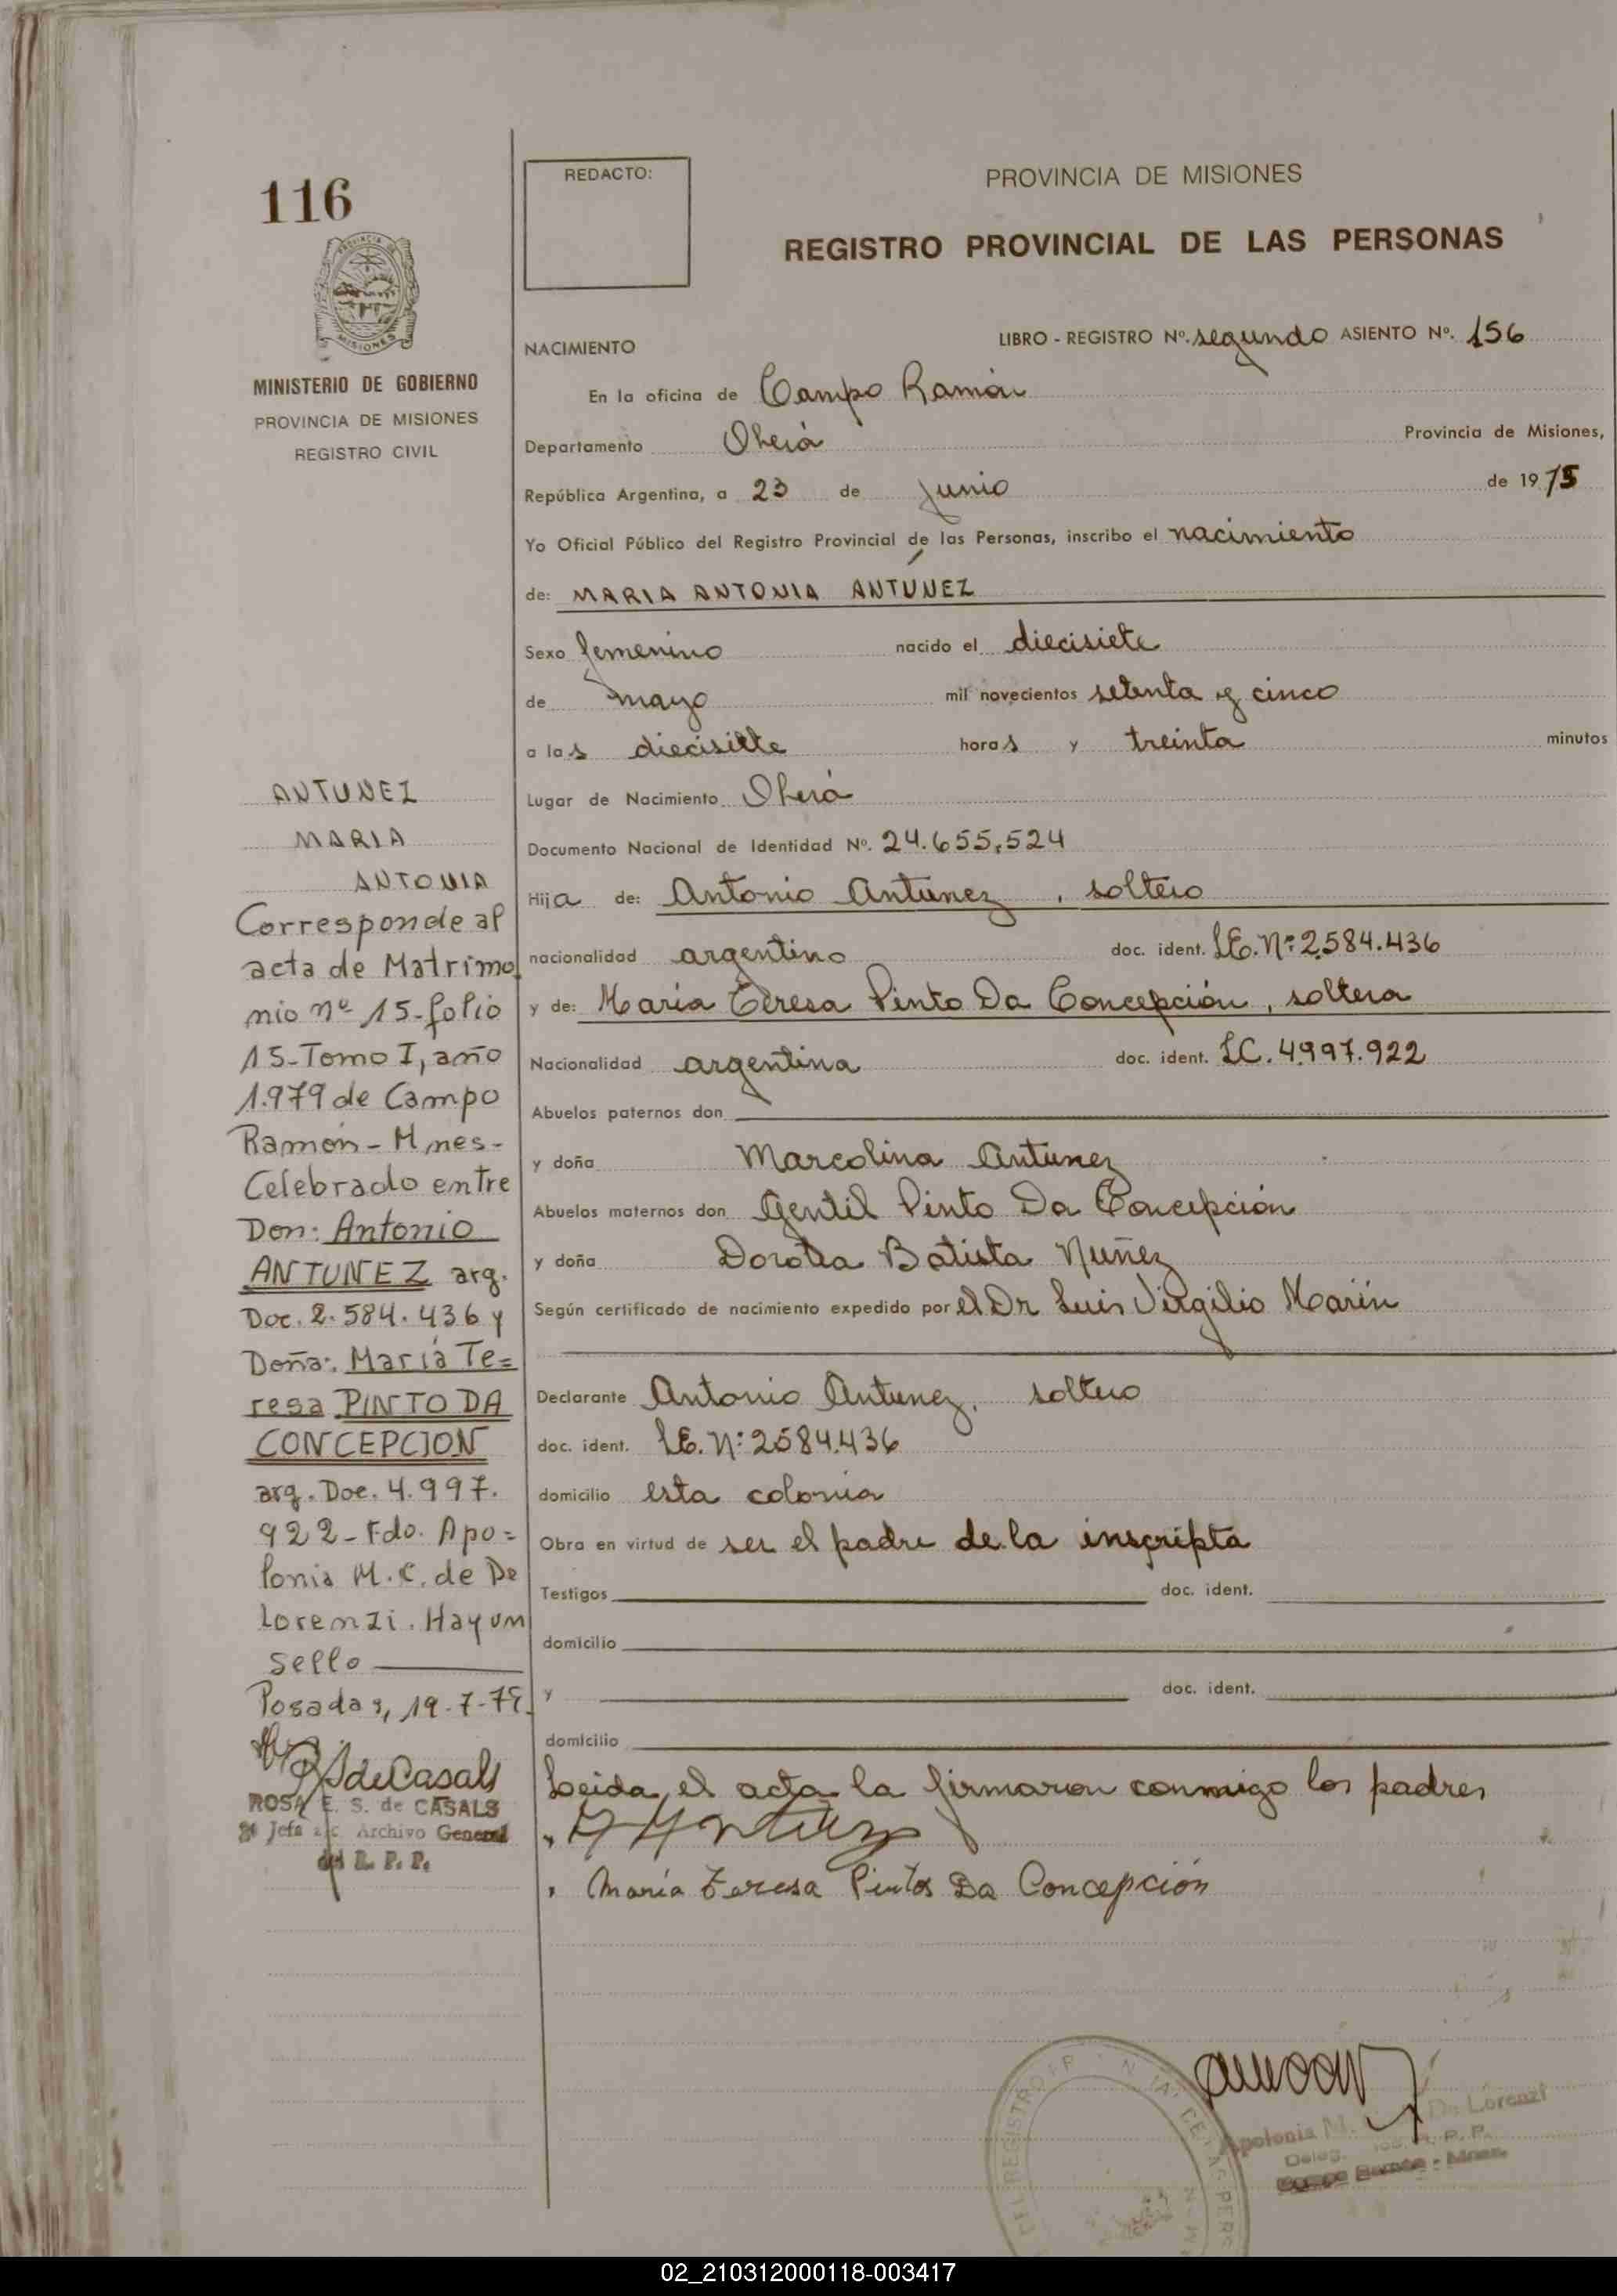 116
PROVINCIA DE
MISIONES
MINISTERIO DE GOBIERNO
PROVINCIA DE MISIONES
REGISTRO CIVIL
ANTUNEZ
MARIA
ANTONIA
Corresponde al
acta de Matrimo
nio nº 15-folio
15-Tomo I, año
1.979 de Campo
Ramón - Mnes-
Celebrado entre
Don: Antonio
ANTUNEZ arg.
Doc. 2.584.436 y
Doña: María Te=
resa PINTO DA
CONCEPCION
arg. Doc. 4.997.
922- Fdo. Apo=
lonia M. C. de De
Lorenzi. Hay un
sello
Posadas, 19-7-79.
RS de Casals
ROSA E. S. de CASALS
Jefa a/c Archivo General
del R. P. P.
REDACTO:
PROVINCIA DE MISIONES
REGISTRO PROVINCIAL DE LAS PERSONAS
NACIMIENTO LIBRO - REGISTRO Nº. segundo ASIENTO Nº. 156
En la oficina de Campo Ramón
Departamento Oberá Provincia de Misiones,
República Argentina, a 23 de junio de 1975
Yo Oficial Público del Registro Provincial de las Personas, inscribo el nacimiento
de: MARIA ANTONIA ANTÚNEZ
Sexo femenino nacido el diecisiete
de mayo mil novecientos setenta y cinco
a las diecisiete horas y treinta minutos
Lugar de Nacimiento Oberá
Documento Nacional de Identidad Nº. 24.655.524
Hija de: Antonio Antunez, soltero
nacionalidad argentino doc. ident. L.E. Nº: 2.584.436
y de: María Teresa Pinto Da Concepción, soltera
Nacionalidad argentina doc. ident. L.C. 4.997.922
Abuelos paternos don
y doña Marcolina Antunez
Abuelos maternos don Gentil Pinto Da Concepción
y doña Dorotea Batista Nuñez
Según certificado de nacimiento expedido por el Dr Luis Virgilio Marin
Declarante Antonio Antunez, soltero
doc. ident. L.E. Nº: 2.584.436
domicilio esta colonia
Obra en virtud de ser el padre de la inscripta
Testigos doc. ident.
domicilio
y doc. ident.
domicilio
Leida el acta la firmaron conmigo los padres
María Teresa Pintos Da Concepción
Apolonia M. De Lorenzi
Deleg. R. P. P.
Campo Ramón - Mnes.
02_210312000118-003417